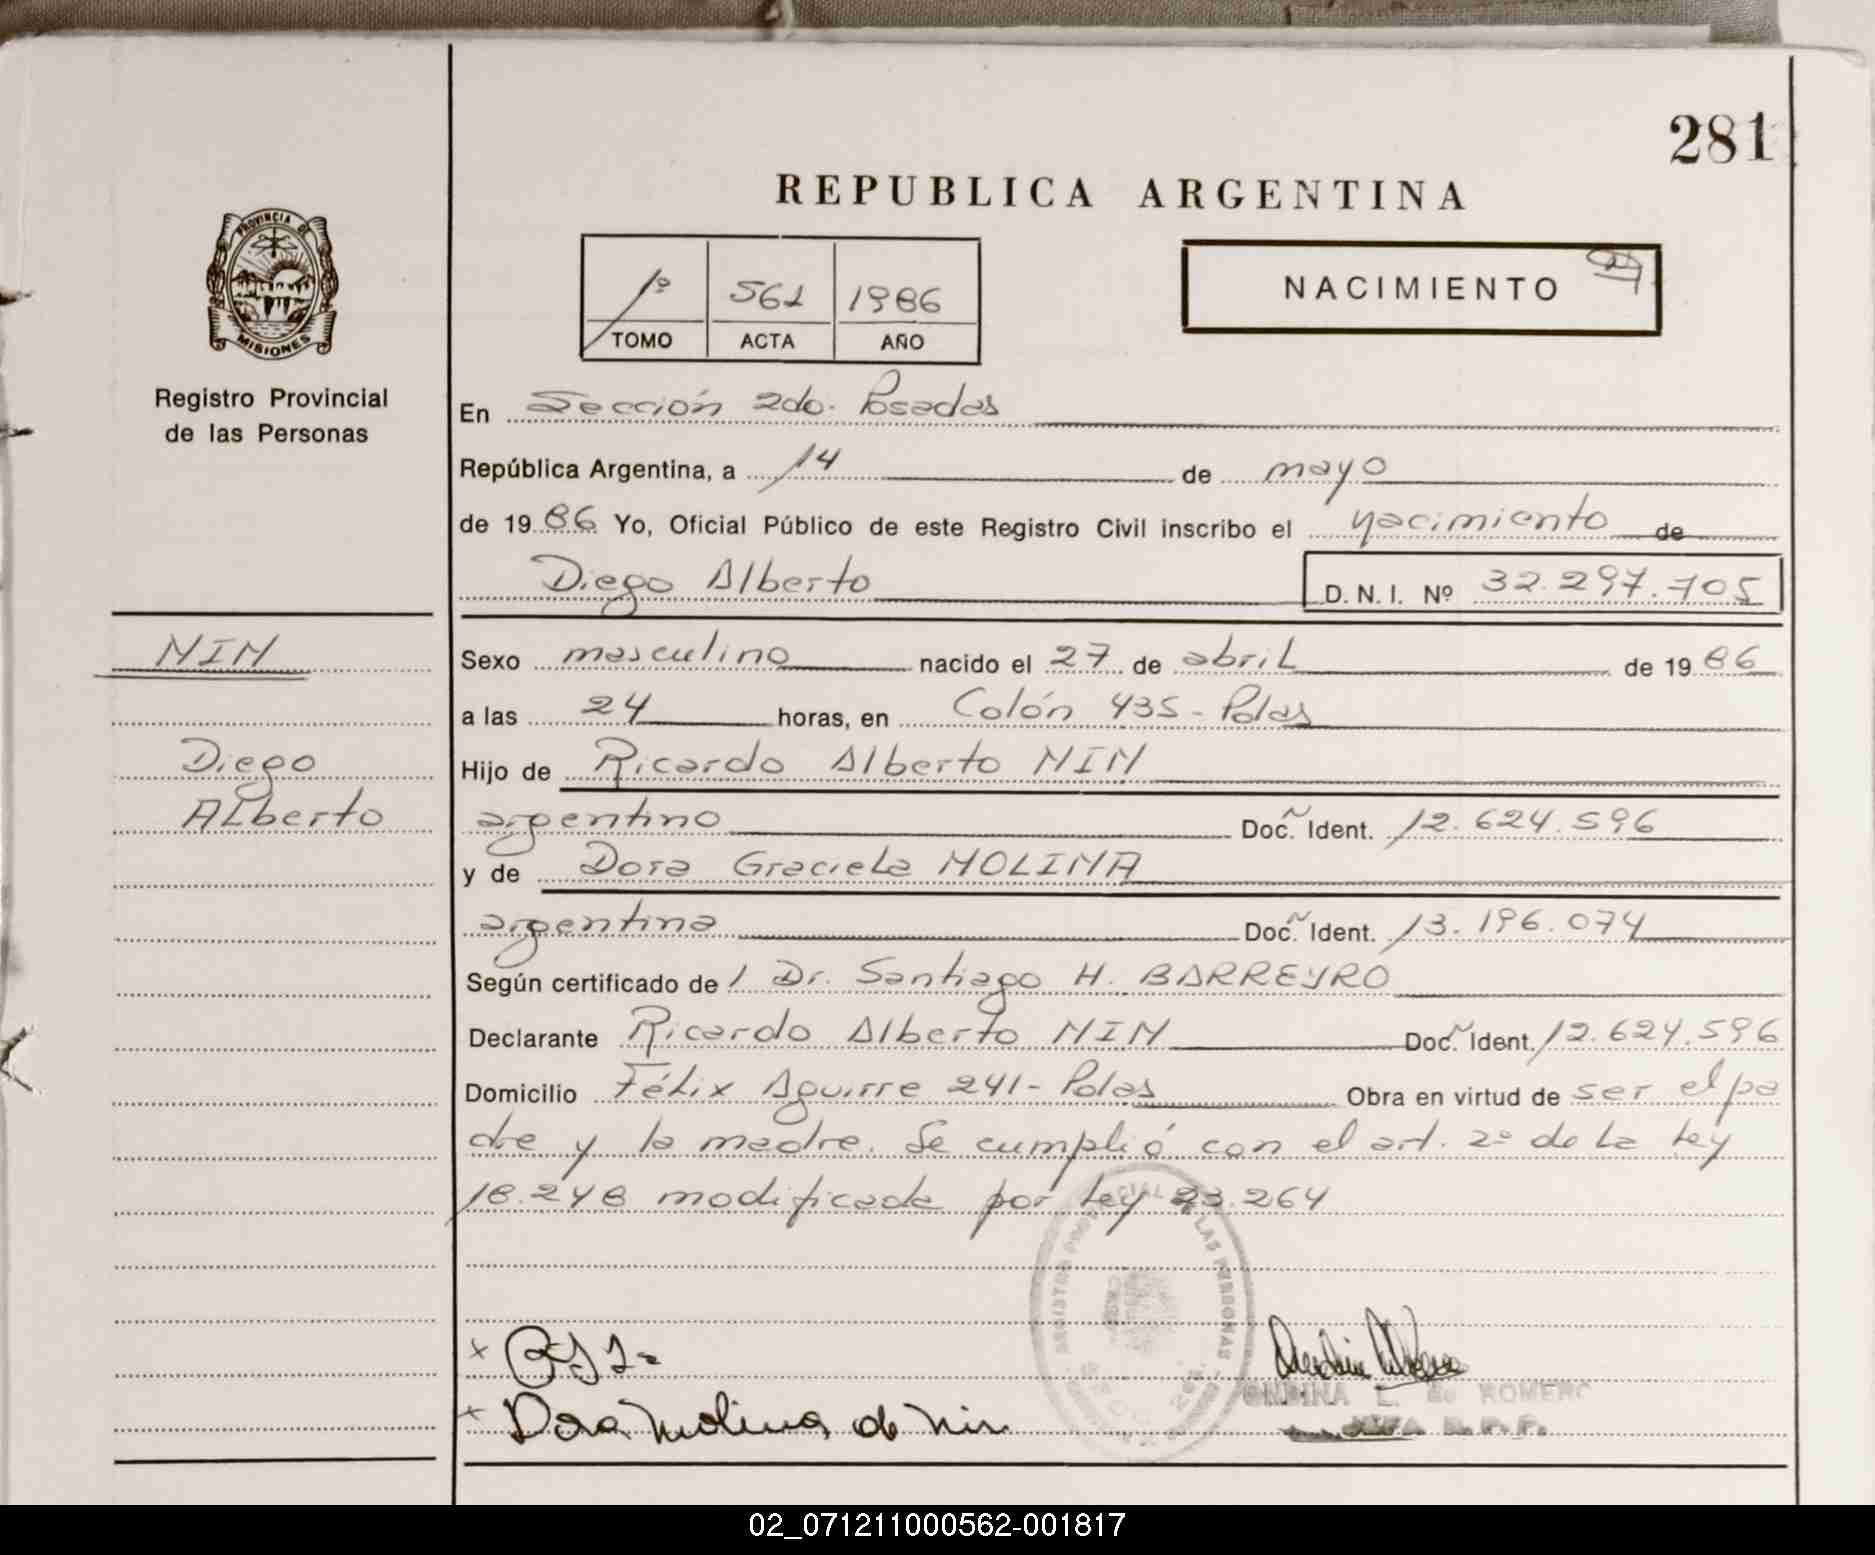 281
REPUBLICA ARGENTINA
PROVINCIA DE
MISIONES
1º 561 1986
TOMO ACTA AÑO
NACIMIENTO
Registro Provincial
de las Personas
En Sección 2da. Posadas
República Argentina, a 14 de mayo
de 1986 Yo, Oficial Público de este Registro Civil inscribo el nacimiento de
Diego Alberto D. N. I. Nº 32.297.705
NIN
Diego
Alberto
Sexo masculino nacido el 27 de abril de 1986
a las 24 horas, en Colón 435 - Pdas
Hijo de Ricardo Alberto NIN
argentino Doc. Ident. 12.624.596
y de Dora Graciela MOLINA
argentina Doc. Ident. 13.196.074
Según certificado de / Dr. Santiago H. BARREYRO
Declarante Ricardo Alberto NIN Doc. Ident. 12.624.596
Domicilio Félix Aguirre 241 - Pdas Obra en virtud de ser el pa
dre y la madre. Se cumplió con el art. 2º de la Ley
18.248 modificada por Ley 23.264
REGISTRO PROVINCIAL DE LAS PERSONAS
x
x Dora Molina de Nin
ONDINA L. de ROMERO
JEFA R. P. P.
02_071211000562-001817